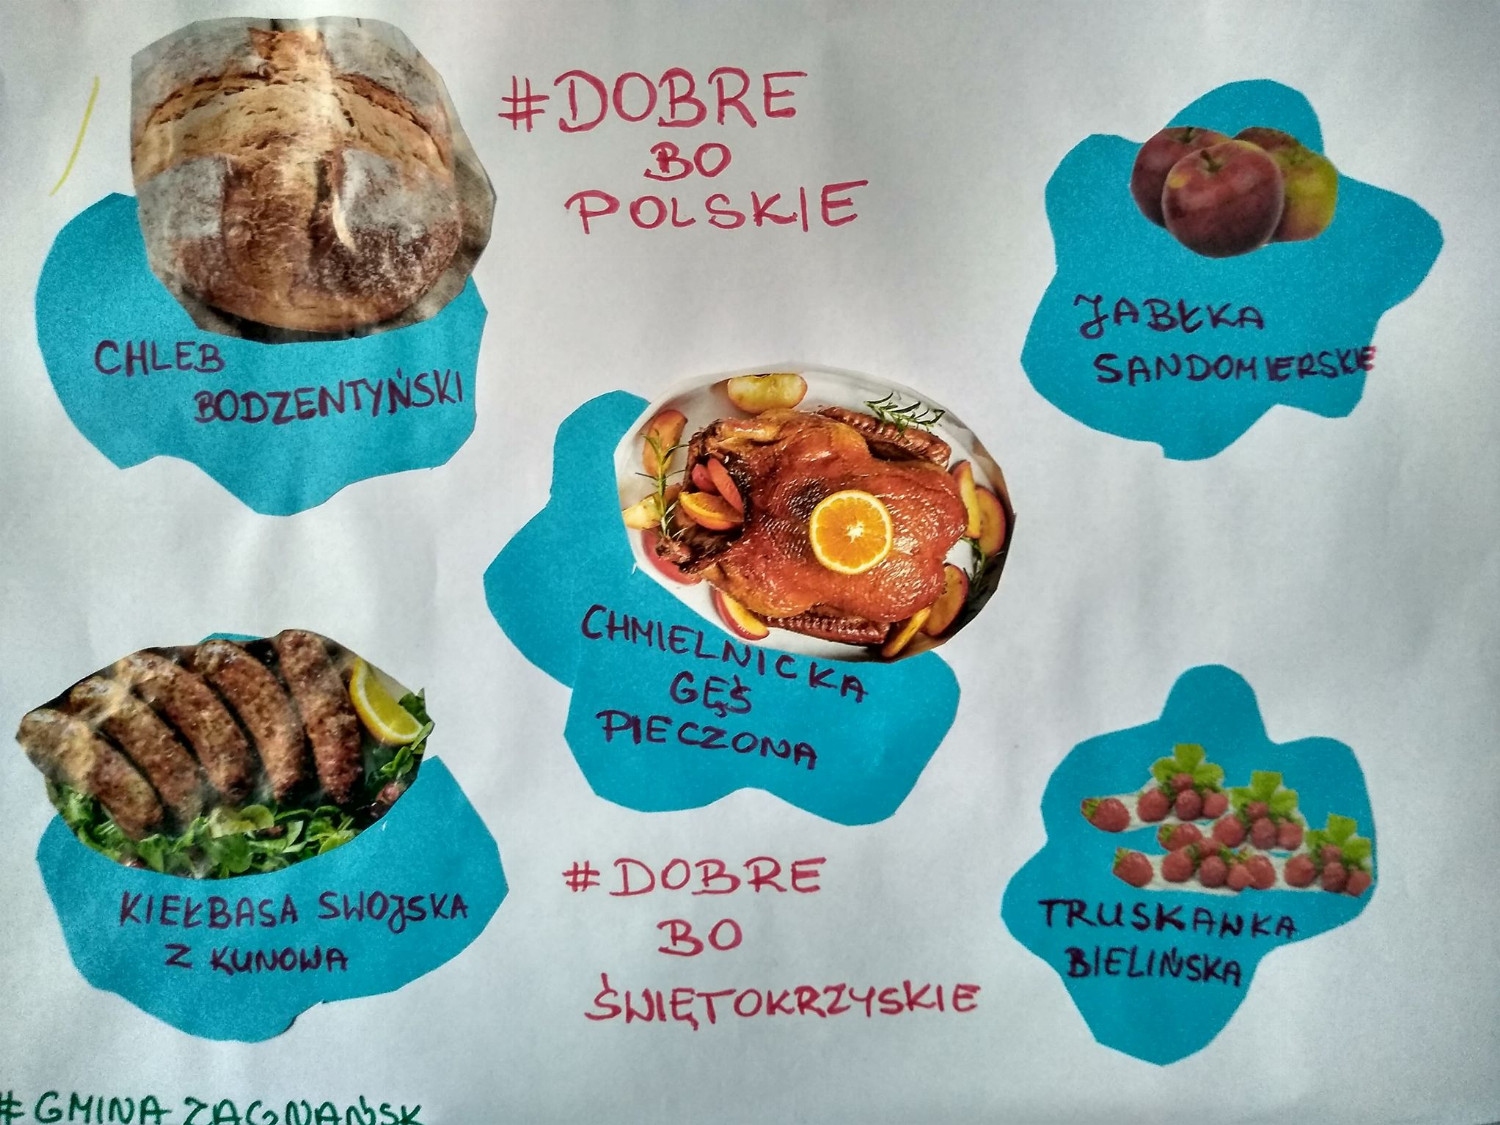 #DOBRE
BO
POLSKIE
CHLEB
BODZENTYŃSKI
JABŁKA
SANDOMIERSKIE
CHMIELNICKA
GĘŚ
PIECZONA
KIEŁBASA SWOJSKA
Z KUNOWA
#DOBRE
BO
ŚWIĘTOKRZYSKIE
TRUSKAWKA
BIELIŃSKA
#GMINA ZAGNAŃSK